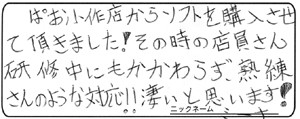 ぱお小作店からソフトを購入させ
て頂きました！その時の店員さん
研修中にもかかわらず、熟練
さんのような対応!!凄いと思います！
ニックネーム